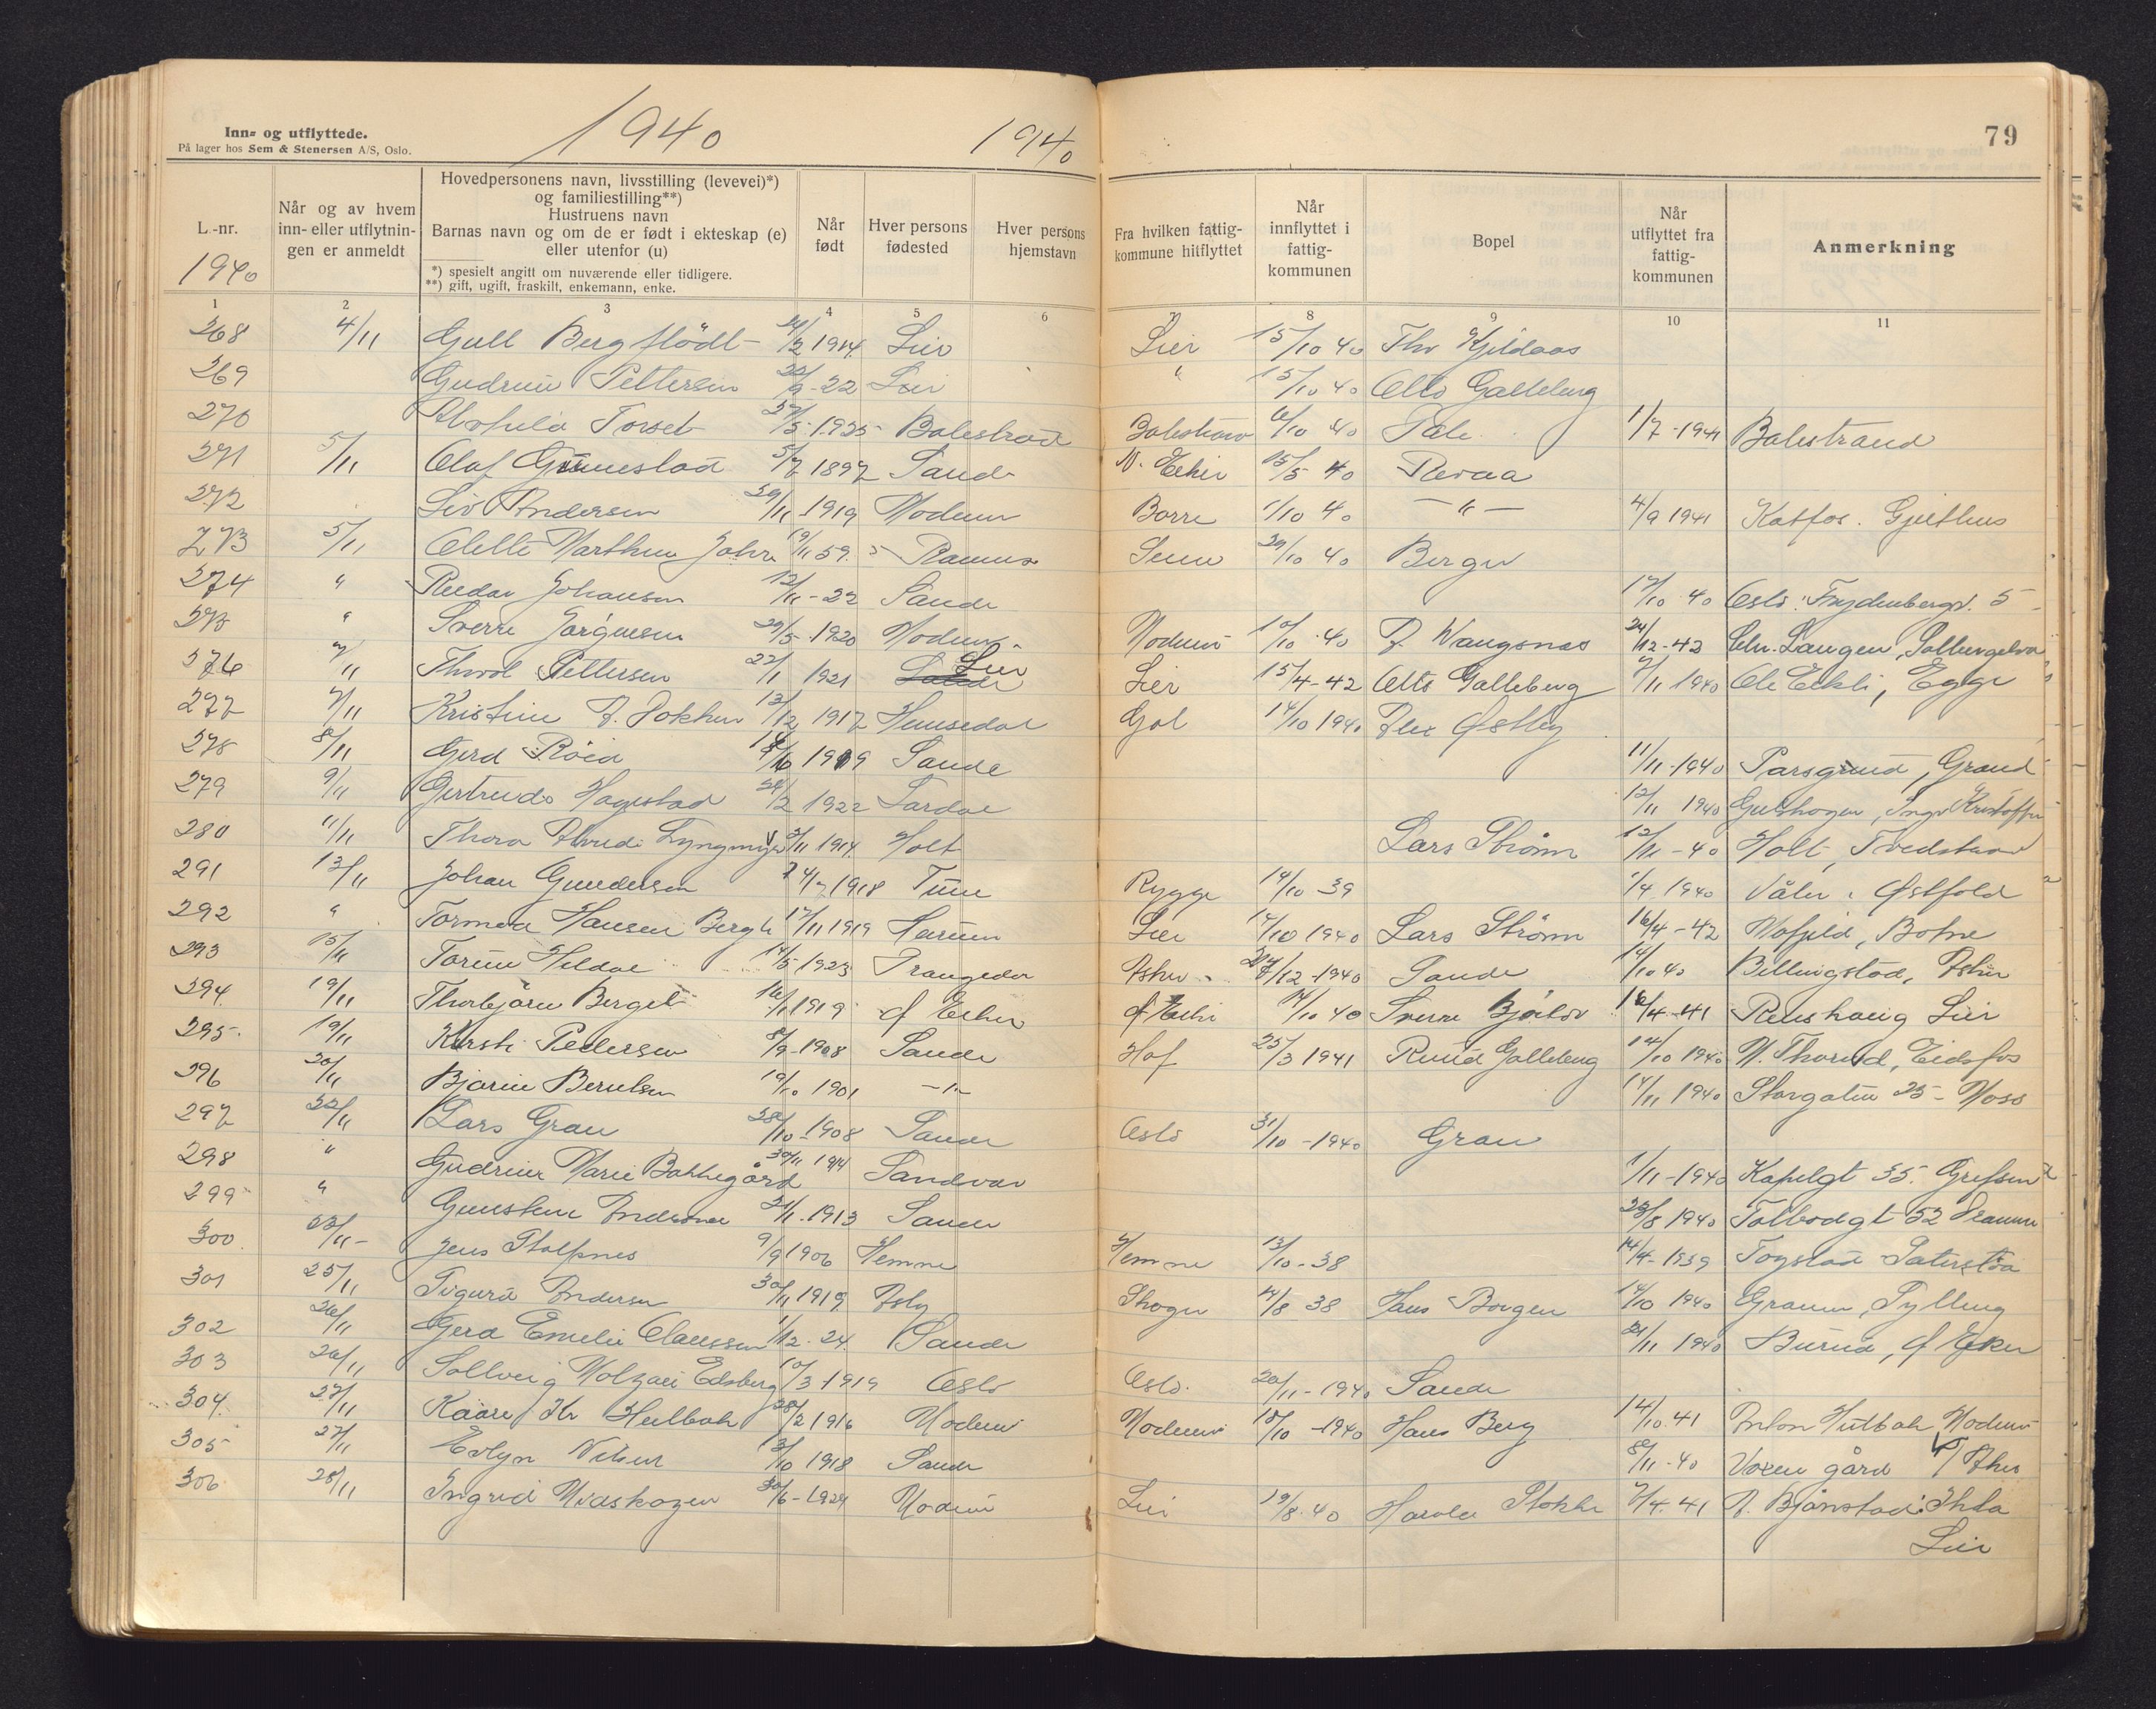 Inn- og utflyttede.
På lager hos Sem & Stenersen A/S, Oslo.
1940 1940
79
L.-nr. 1940
Når og av hvem inn- eller utflytnin- gen er anmeldt
Hovedpersonens navn, livsstilling (levevei)*) og familiestilling**) Hustruens navn Barnas navn og om de er født i ekteskap (e) eller utenfor (u)
*) spesielt angitt om nuværende eller tidligere.
**) gift, ugift, fraskilt, enkemann, enke.
Når født
Hver persons fødested
Hver persons hjemstavn
Fra hvilken fattig- kommune hitflyttet
Når innflyttet i fattig- kommunen
Bopel
Når utflyttet fra fattig- kommunen
Anmerkning
1 2 3 4 5 6 7 8 9 10 11
268 4/11 Gull Bergflödt 1914 Lier Lier 15/10 40 Thv Kjildaas
269 Gudrun Pettersen 22/9-22 Lier " 15/10 40 Otto Galleberg
270 Torset 27/5-1925 Balestrand Balestrand 6/10 40 1/7-1941 Balestrand
271 5/11 Olaf 5/7 1897 Sande N. Eker 15/5 40 Revaa
272 Liv Andersen 29/11-1919 Modum Borre 1/10 40 -"- 4/9 1941 Katfos. Gjethus
273 5/11 Martine 19/11 59 Ramnes Sem 29/10 40 Berger
274 " Reidar Johansen 12/11-22 Sande 17/10 40 Oslo. Frydenbergv. 5
275 " Sverre Jörgensen 29/5-1920 Modum Modum 10/10 40 A. Wangsnes 24/12-42 Chr. Laugen, Solbergelva
276 7/11 Thorol Pettersen 22/1 1921 Sande Lier Lier 15/4-42 Otto Galleberg 7/11 1940 Ole Eikli, Egge
277 7/11 Kristine A. Dokken 13/12 1917 Hemsedal Gol 14/10 1940 Alex Østby
278 8/11 Gerd Röed 1919 Sande 11/11-1940 Porsgrund, Grand
279 9/11 Gertrude Hagestad 24/2 1922 Lardal 12/11 1940 Gulskogen, Ingv Kristoffer
280 11/11 Thora Alvide Lyngmyr 3/11 1914 Holt Lars Strömm 12/11-40 Holt, Tvedstrand
291 13/11 Johan Gundersen 24/7 1918 Tune Rygge 14/10 39 1/4 1940 Våler i Østfold
292 " Tormod Hansen Bergh 17/11 1919 Hurum Lier 17/10 1940 Lars Strömm 16/4-42 Hofjeld, Botne
293 15/11 Torun Heldal 14/5-1923 Drangedal Asker 27/12-1940 Sande 14/10 40 Billingstad, Asker
294 19/11 Thorbjörn Berget 16/1 1919 Ø Eker Ø Eker 14/10 40 Sverre 16/4-41 Renskaug Lier
295 19/11 Kirsti Pedersen 8/9-1908 Sande Hof 25/3 1941 Ruud Galleberg 14/10 1940 N. Thorud, Eidsfos
296 20/11 Bjarne Berntsen 19/10 1901 -"- 14/11 1940 Storgaten 25 - Moss
297 22/11 Lars Gran 28/10-1908 Sande Oslo 31/10-1940 Gran
298 " Gudrun Marie Bakkegård 30/11 1914 Sandsvær 1/11-1940 Kapelgt 35. Grefsen
299 " Gunstein Andersen 21/11-1913 Sande 23/8 1940 Tolbodgt 52 Dramm
300 23/11- Jens Stolpnes 9/9 1906 Hemne Hemne 13/10-38 14/4-1939 Togstad Sæterstöa
301 25/11 Sigurd Andersen 30/11 1919 Asly Skoger 14/8 38 Hans Borgen 14/10 1940 Granum, Sylling
302 26/11 Gerd Emelie Claussen 1/12-24 Sande 21/11 1940 Burud, Ø Eker
303 26/11 Sollveig Molzau Edsberg 10/3-1919 Oslo Oslo. 20/11-1940 Sande
304. 27/11 Kaare Kr Hulbak 28/2 1916 Modum Modum 15/10-1940 Hans Berg 14/10.41 Anton Hulbak, Modum
305 27/11 Evlyn Nilsen 13/10 1918 Sande 8/11-40 Voxen gård V/ Aker
306 28/11 Ingrid Midskogen 30/6-1924 Modum Lier 19/8-40 Harald Stokke 7/4-41 A. Björnstad. Ihla
Lier